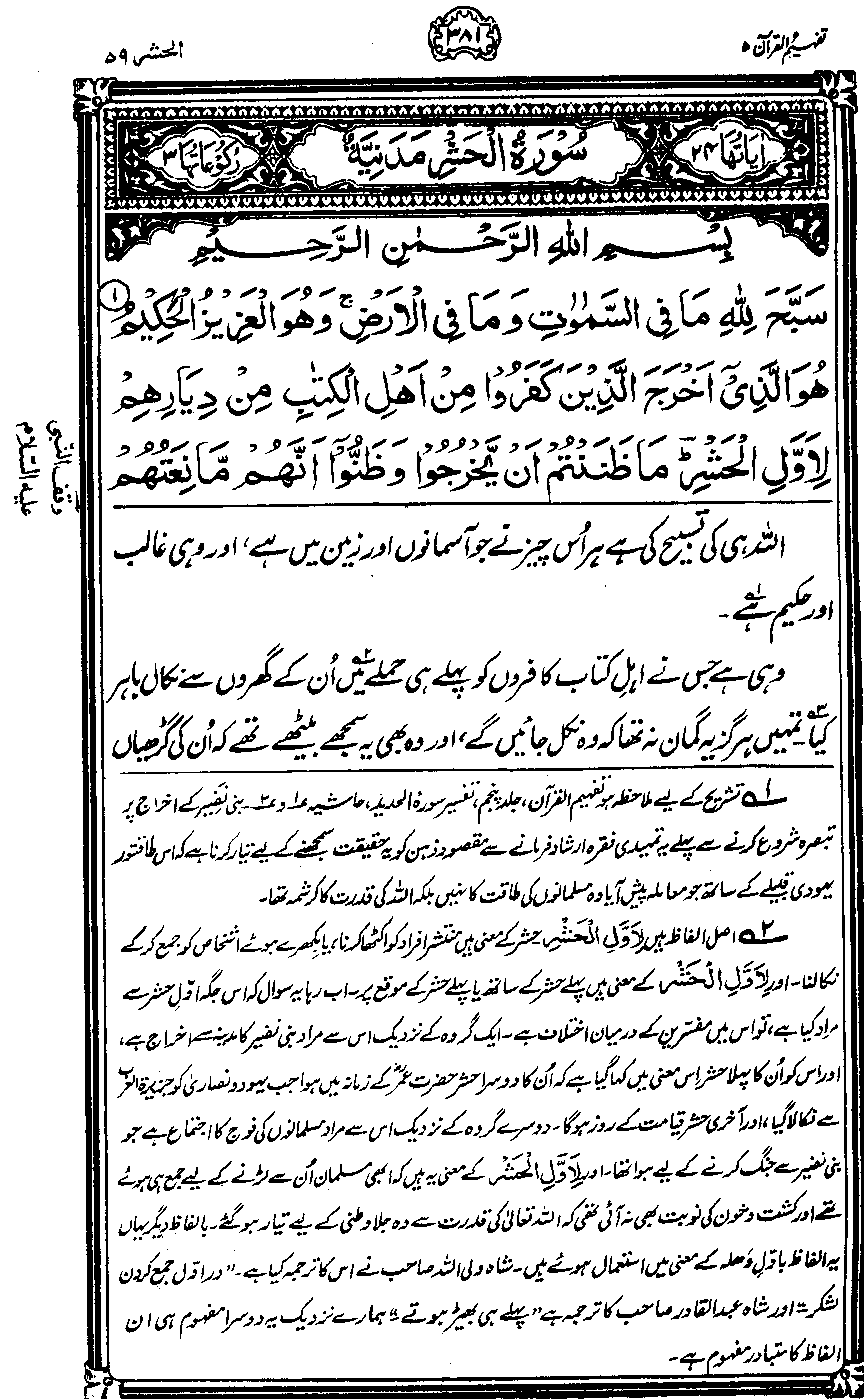 تفہیم القرآن ۵
۳۸۱
الحشر ۵۹
اٰیَاتُهَا ۲۴
سُوْرَةُ الْحَشْرِ مَدَنِيَّةٌ
رُكُوْعَاتُهَا ۳
بِسْمِ اللهِ الرَّحْمٰنِ الرَّحِيْمِ
سَبَّحَ لِلّٰهِ مَا فِي السَّمٰوٰتِ وَمَا فِي الْاَرْضِ ۚ وَهُوَ الْعَزِيْزُ الْحَكِيْمُ ۱
هُوَ الَّذِيْٓ اَخْرَجَ الَّذِيْنَ كَفَرُوْا مِنْ اَهْلِ الْكِتٰبِ مِنْ دِيَارِهِمْ
لِاَوَّلِ الْحَشْرِ ؕ مَا ظَنَنْتُمْ اَنْ يَّخْرُجُوْا وَظَنُّوْٓا اَنَّهُمْ مَّانِعَتُهُمْ
وقف النبی
علیہ السلام
اللہ ہی کی تسبیح کی ہے ہر اُس چیز نے جو آسمانوں اور زمین میں ہے، اور وہی غالب
اور حکیم ہے۱۔
وہی ہے جس نے اہلِ کتاب کافروں کو پہلے ہی حملے۲ میں اُن کے گھروں سے نکال باہر
کیا۳۔ تمہیں ہرگز یہ گمان نہ تھا کہ وہ نکل جائیں گے، اور وہ بھی یہ سمجھے بیٹھے تھے کہ اُن کی گڑھیاں
۱؎ تشریح کے لیے ملاحظہ ہو تفہیم القرآن، جلد پنجم، تفسیر سورۂ الحدید، حاشیہ ۱ و ۲۔ بنی نضیر کے اخراج پر
تبصرہ شروع کرنے سے پہلے یہ تمہیدی فقرہ ارشاد فرمانے سے مقصود ذہن کو یہ حقیقت سمجھنے کے لیے تیار کرنا ہے کہ اس طاقتور
یہودی قبیلے کے ساتھ جو معاملہ پیش آیا وہ مسلمانوں کی طاقت کا نہیں بلکہ اللہ کی قدرت کا کرشمہ تھا۔
۲؎ اصل الفاظ ہیں لِاَوَّلِ الْحَشْرِ۔ حشر کے معنی ہیں منتشر افراد کو اکٹھا کرنا، یا بکھرے ہوئے اشخاص کو جمع کر کے
نکالنا۔ اور لِاَوَّلِ الْحَشْرِ کے معنی ہیں پہلے حشر کے ساتھ یا پہلے حشر کے موقع پر۔ اب رہا یہ سوال کہ اس جگہ اول حشر سے
مراد کیا ہے، تو اس میں مفسرین کے درمیان اختلاف ہے۔ ایک گروہ کے نزدیک اس سے مراد بنی نضیر کا مدینہ سے اخراج ہے،
اور اس کو اُن کا پہلا حشر اس معنی میں کہا گیا ہے کہ اُن کا دوسرا حشر حضرت عمرؓ کے زمانہ میں ہوا جب یہود و نصاریٰ کو جزیرۃ العرب
سے نکالا گیا، اور آخری حشر قیامت کے روز ہوگا۔ دوسرے گروہ کے نزدیک اس سے مراد مسلمانوں کی فوج کا اجتماع ہے جو
بنی نضیر سے جنگ کرنے کے لیے ہوا تھا۔ اور لِاَوَّلِ الْحَشْرِ کے معنی یہ ہیں کہ ابھی مسلمان اُن سے لڑنے کے لیے جمع ہی ہوئے
تھے اور کشت و خون کی نوبت بھی نہ آئی تھی کہ اللہ تعالیٰ کی قدرت سے وہ جلا وطنی کے لیے تیار ہو گئے۔ بالفاظ دیگر یہاں
یہ الفاظ باوّلِ وَھلہ کے معنی میں استعمال ہوئے ہیں۔ شاہ ولی اللہ صاحب نے اس کا ترجمہ کیا ہے۔ ”در اوّل جمع کردن
لشکر“ اور شاہ عبدالقادر صاحب کا ترجمہ ہے ”پہلے ہی بھیڑ ہوتے“۔ ہمارے نزدیک یہ دوسرا مفہوم ہی ان
الفاظ کا متبادر مفہوم ہے۔